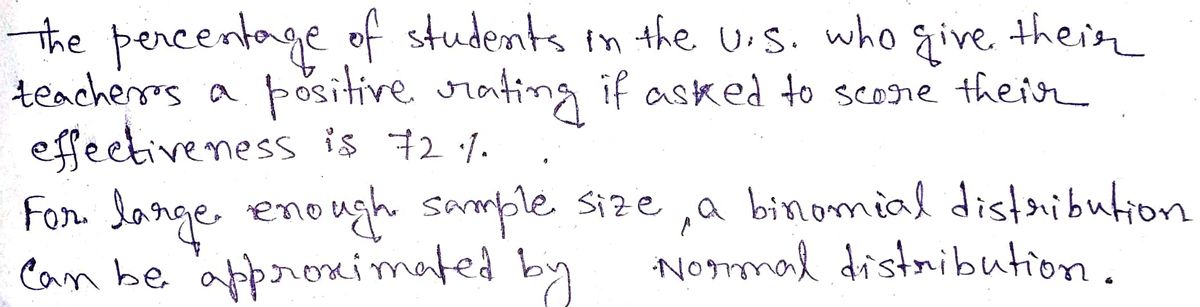 The percentage of students in the U.S. who give their
teachers a positive rating if asked to score their
effectiveness is 72 %.
For large enough sample size, a binomial distribution
Can be approximated by Normal distribution.